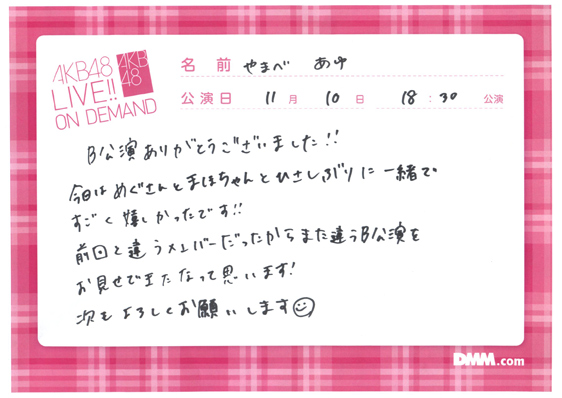 AKB48
LIVE!!
ON DEMAND
AKB
48
名前 やまべ あゆ
公演日 11月 10日 18:30 公演
B公演ありがとうございました!!
今日はめぐさんとまほちゃんとひさしぶりに一緒で
すごく嬉しかったです!!
前回と違うメンバーだったからまた違うB公演を
お見せできたなって思います!
次もよろしくお願いします
DMM.com